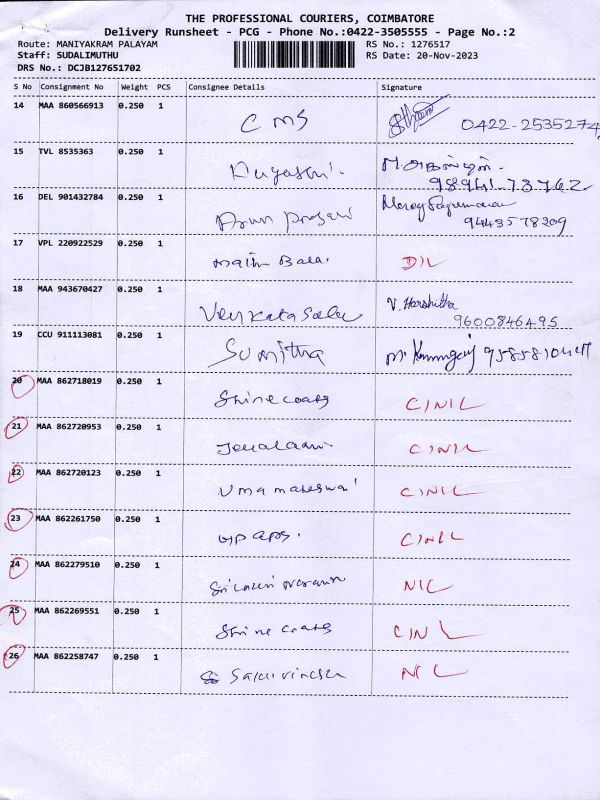 THE PROFESSIONAL COURIERS, COIMBATORE
Delivery Runsheet - PCG - Phone No.:0422-3505555 - Page No.:2
Route: MANIYAKRAM PALAYAM RS No.: 1276517
Staff: SUDALIMUTHU RS Date: 20-Nov-2023
DRS No.: DCJB127651702
S No Consignment No Weight PCS Consignee Details Signature
14 MAA 860566913 0.250 1
CMS 0422-2535274
15 TVL 8535363 0.250 1
98941-73762
16 DEL 901432784 0.250 1
9443578209
17 VPL 220922529 0.250 1
Bala. D/L
18 MAA 943670427 0.250 1
V. Harshitha
9600846495
19 CCU 911113081 0.250 1
Sumitha
20 MAA 862718019 0.250 1
Shine CINIL
21 MAA 862720953 0.250 1
CINIL
22 MAA 862720123 0.250 1
Uma maheswari CINIL
23 MAA 862261750 0.250 1
CINIL
24 MAA 862279510 0.250 1
NIL
25 MAA 862269551 0.250 1
Shine CINL
26 MAA 862258747 0.250 1
NIL